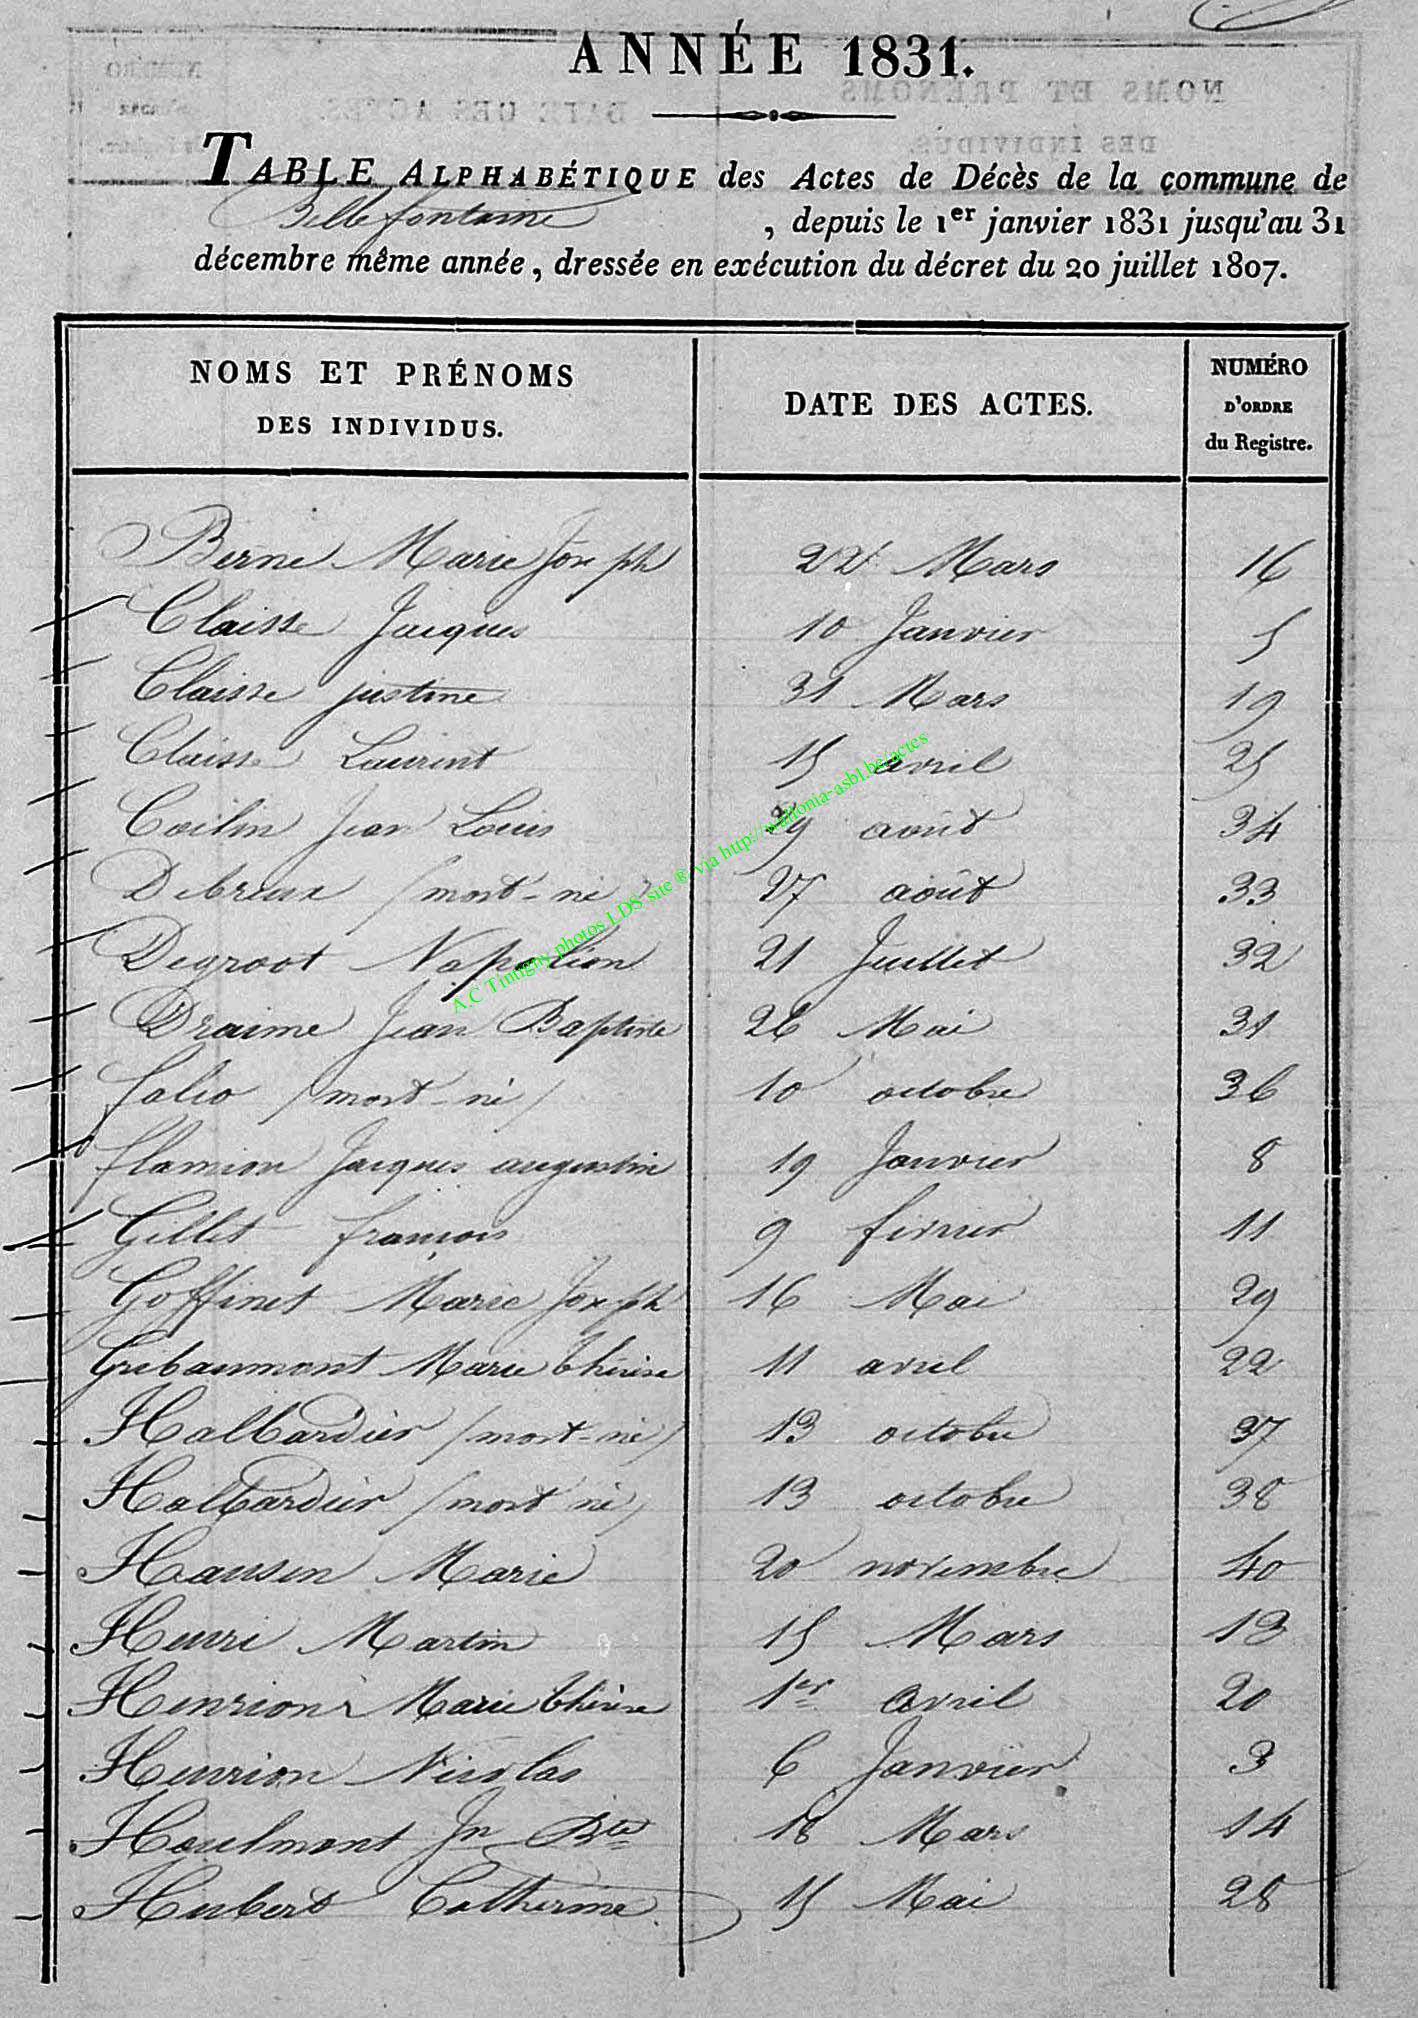 ANNÉE 1831.
TABLE ALPHABÉTIQUE des Actes de Décès de la commune de
Bellefontaine , depuis le 1er janvier 1831 jusqu'au 31
décembre même année, dressée en exécution du décret du 20 juillet 1807.
NOMS ET PRÉNOMS DES INDIVIDUS. DATE DES ACTES. NUMÉRO D'ORDRE du Registre.
Berne Marie Joseph 22 Mars 16
Claisse Jacques 10 Janvier 5
Claisse justine 31 Mars 19
Claisse Laurent 15 avril 25
Collin Jean Louis 29 août 34
Debreux /mort-né/ 27 août 33
Degroot Napoléon 21 Juillet 32
Draime Jean Baptiste 26 Mai 31
falio /mort-né/ 10 octobre 36
flamion Jacques augustin 19 Janvier 8
Gillet françois 9 février 11
Goffinet Marie Joseph 16 Mai 29
Gribaumont Marie thérèse 11 avril 22
Halbardier /mort-né/ 13 octobre 37
Halbardier /mort né/ 13 octobre 38
Hansen Marie 20 novembre 40
Henri Martin 15 Mars 13
Henrion Marie thérèse 1er avril 20
Henrion Nicolas 6 Janvier 3
Houlmont Jn Bte 18 Mars 14
Hubert Catherine 15 Mai 28
A.C Tintigny photos LDS site ® via http://wallonia-asbl.be/actes